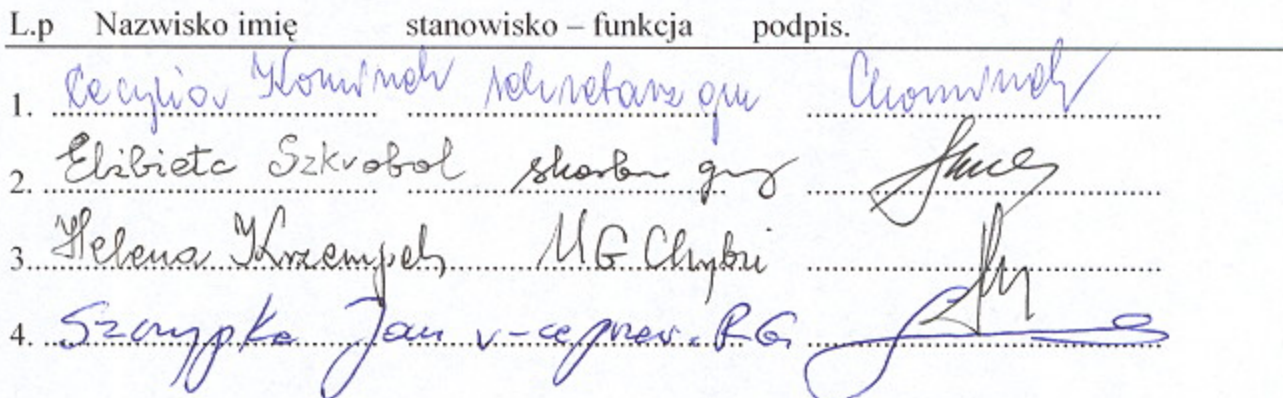 L.p Nazwisko imię stanowisko – funkcja podpis.
1. Cecylia Kominek sekretarz gm
2. Elżbieta Szkrobol skarbn gm
3. Helena Krzempek UG Chybie
4. Szczypka Jan v-ce przew. RG